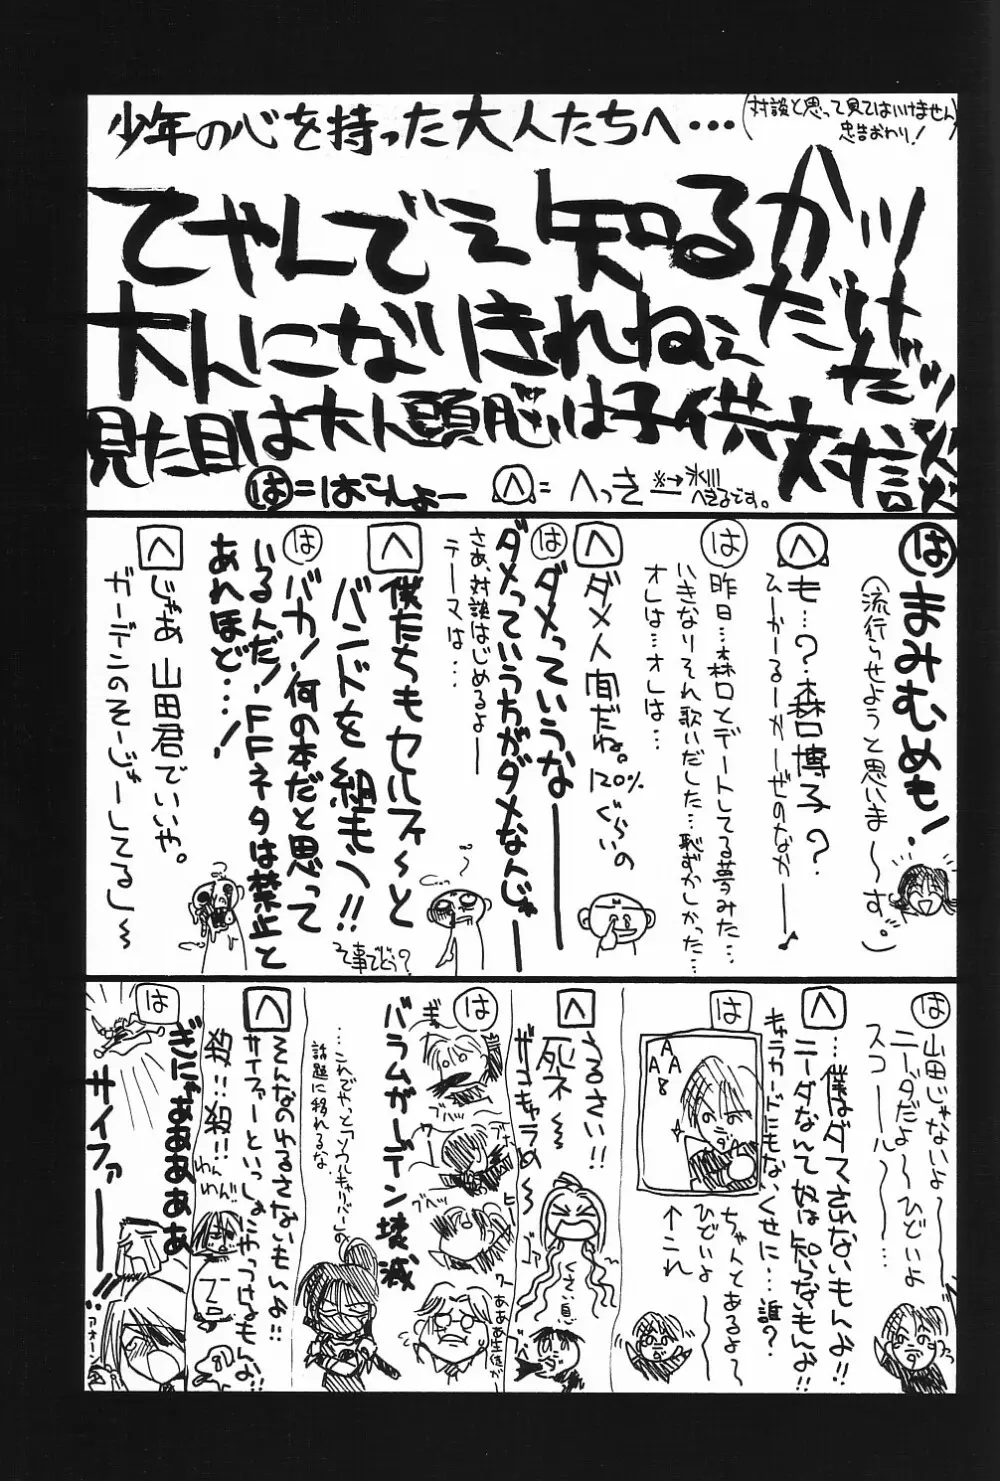 少年の心を持った大人たちへ…
(対談と思って見てはいけません
忠告おわり!)
てやんでぇ知るかッ
大人になりきれねぇ
だけだッ
見た目は大人頭脳は子供対談
は=はこんよー
へ=へっき
※→氷川
へきるです。
は まみむめも!
(流行らせようと思いま〜す。)
へ も…?森口博子?
ムーかーるーかーぜのなかー♪
は 昨日…森口とデートしてる夢みた…
いきなりそれ歌いだした…恥ずかしかった…
オレは…オレは…
へ ダメ人間だね。120%ぐらいの
は ダメっていうなー
ダメっていうちがダメなんじゃー
さあ、対談はじめるよー
テーマは…
へ 僕たちもセルフィ〜と
バンドを組もう!!
そ事でどう?
は バカ!何の本だと思って
いるんだ!FFネタは禁止と
あれほど…!
へ じゃあ山田君でいいや。
ガーデンのそーじゃーしてるし〜
は 山田じゃないよ〜
ニーダだよ〜ひどいよ
スコール〜…
へ …僕はダマされないもんよ!!
ニーダなんて奴は知らなもんよ!!
キャラカードにもなくせに…誰?
は ちゃんとあるよ〜
ひどいよ〜
↑これ
A
A
A
8
へ うるさい!!
死ネ〜
ザコキャラめ〜
くさい息
は バラムガーデン壊滅
ブハッ
ブヘッ
うーああ生徒が
…これでやっとソウルキャリバーの
話題に移れるな
へ そんなのゆるさないもんよ!!
サイファーといっしょにやっつけるもんよ!!
わんわん!!
は ぎにゃあああぁ
サイファーーー!!